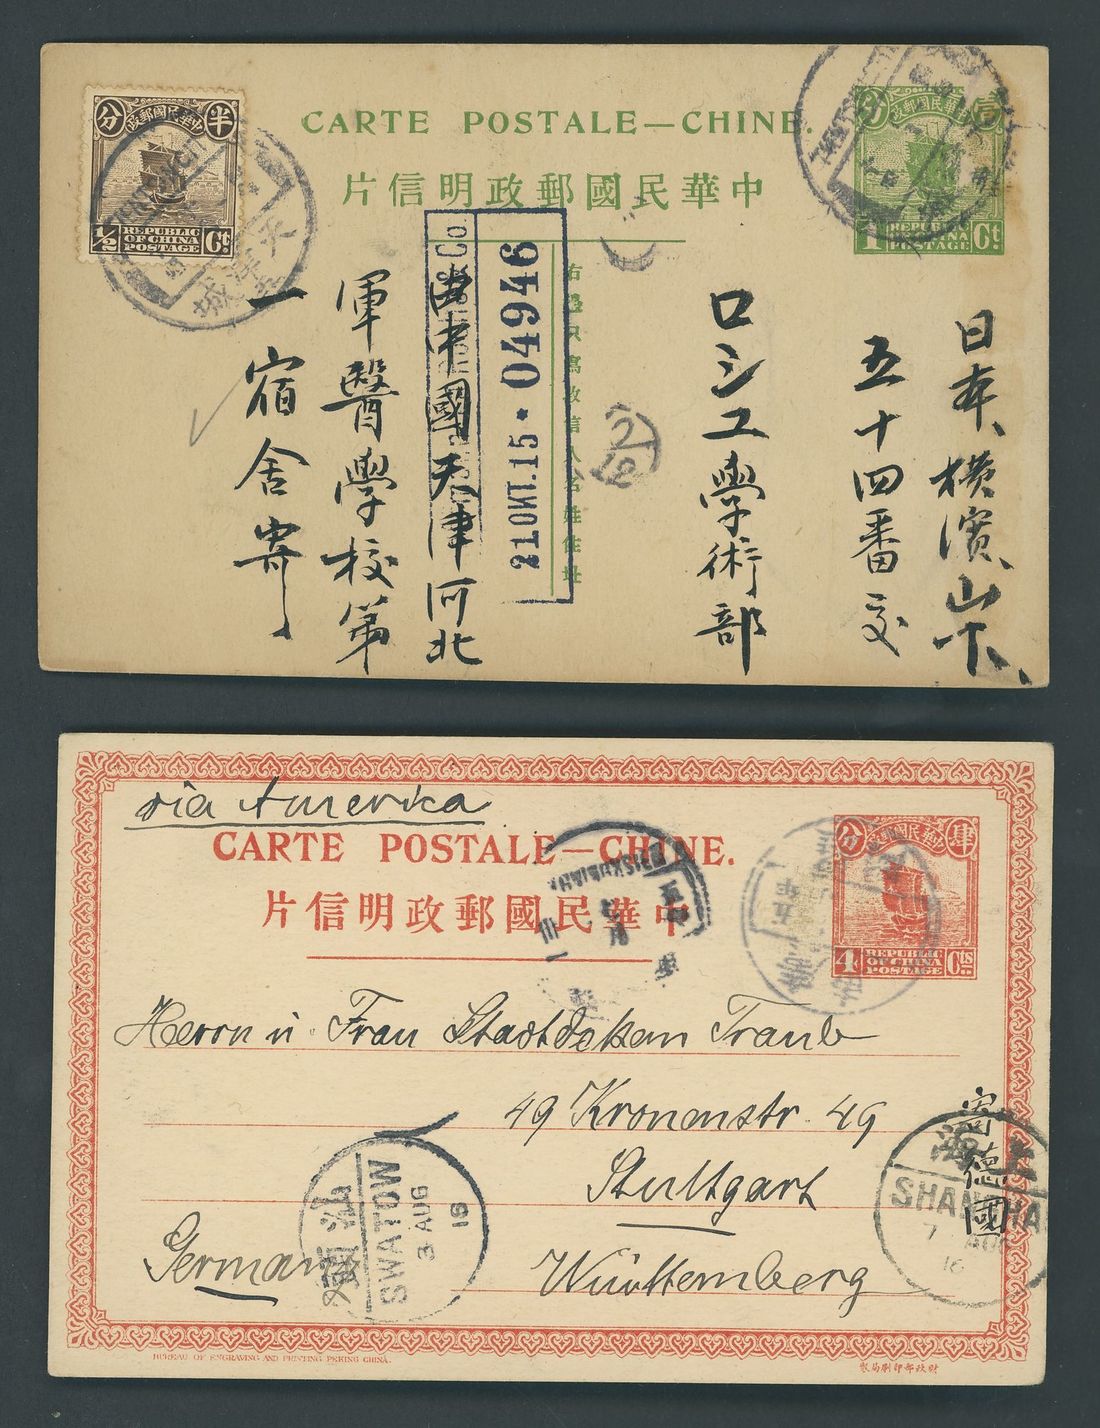 CARTE POSTALE—CHINE.
片信明政郵國民華中
政郵國民華中
半
分
1/2
REPUBLIC
OF CHINA
POSTAGE
Ct.
壹
分
1
Ct.
日本、橫濱、山下、
五十四番交
ロシエ學術部
由中國天津河北
軍醫學校第
一宿舍寄
21OKT.15* 04946
& Co.
天津
城
2/12
via America
CARTE POSTALE—CHINE.
片信明政郵國民華中
政郵國民華中
肆
分
4
REPUBLIC
OF CHINA
POSTAGE
Cts
Herrn u. Frau Stadtdekan Traub
49 Kronenstr. 49
Stuttgart
Württemberg
Germany
寄德國
SWATOW
3 AUG
16
上海
SHANGHAI
7 AUG
16
BUREAU OF ENGRAVING AND PRINTING PEKING CHINA.
製局刷印部政財